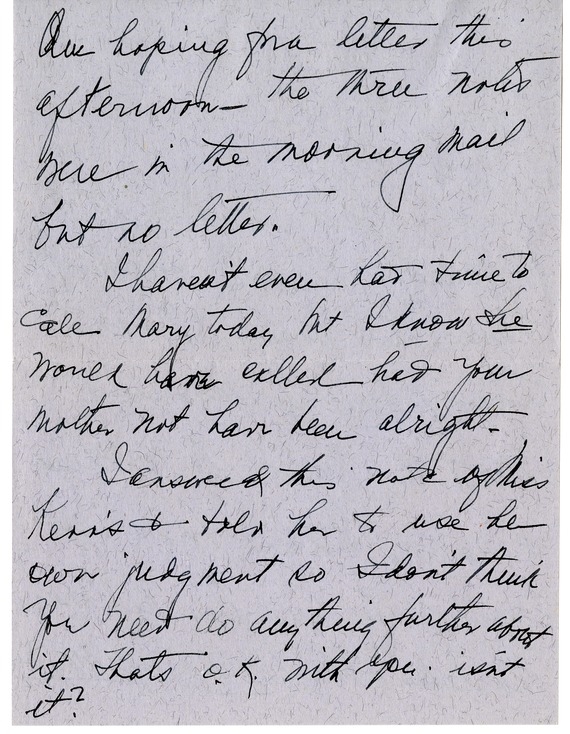 Am hoping for a letter this
afternoon— the three notes
were in the morning mail
but no letter.
I haven't even had time to
call Mary today but I know she
would have called had your
mother not have been alright.
I answered this note of Miss
Kerr's & told her to use her
own judgment so I don't think
you need do anything further about
it. Thats o.k. with you. isn't
it?